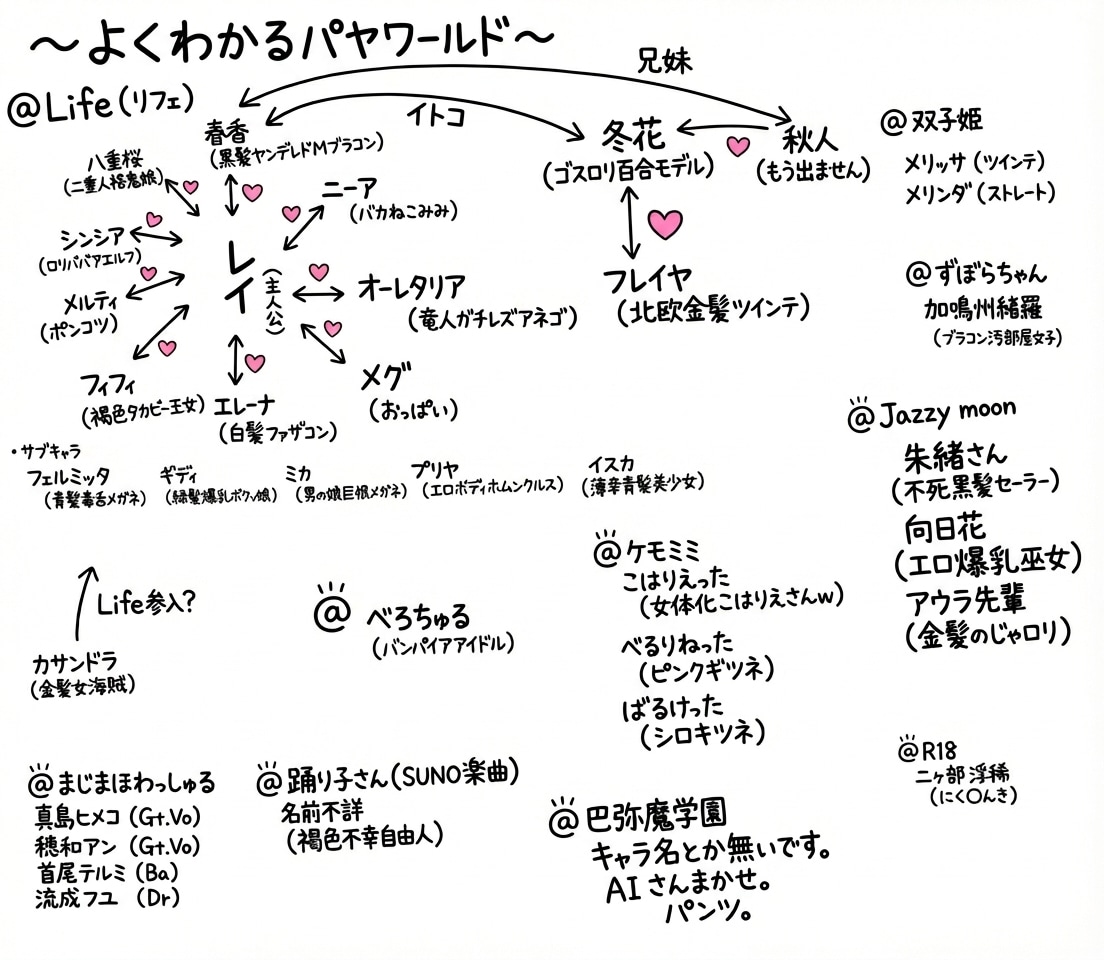 ～よくわかるパヤワールド～
兄妹
@Life(リフェ)
イトコ
春香
(黒髪ヤンデレドMブラコン)
冬花
(ゴスロリ百合モデル)
秋人
(もう出ません)
@双子姫
メリッサ(ツインテ)
メリンダ(ストレート)
八重桜
(二重人格鬼娘)
ニーア
(バカねこみみ)
シンシア
(ロリババアエルフ)
レイ
(主人公)
オーレタリア
(竜人ガチレズアネゴ)
フレイヤ
(北欧金髪ツインテ)
@ずぼらちゃん
加鳴州緒羅
(ブラコン汚部屋女子)
メルティ
(ポンコツ)
フィフィ
(褐色タカビー王女)
エレーナ
(白髪ファザコン)
メグ
(おっぱい)
・サブキャラ
フェルミッタ
(青髪毒舌メガネ)
ギディ
(緑髪爆乳ボクッ娘)
ミカ
(男の娘巨根メガネ)
プリヤ
(エロボディホムンクルス)
イスカ
(薄幸青髪美少女)
@Jazzy moon
朱緒さん
(不死黒髪セーラー)
向日花
(エロ爆乳巫女)
アウラ先輩
(金髪のじゃロリ)
Life参入?
カサンドラ
(金髪女海賊)
@べろちゅる
(バンパイアアイドル)
@ケモミミ
こはりえった
(女体化こはりえさんw)
べるりねった
(ピンクギツネ)
ばるけった
(シロキツネ)
@R18
二ヶ部浮稀
(にく〇んき)
@まじまほわっしゅる
真島ヒメコ(Gt.Vo)
穂和アン(Gt.Vo)
首尾テルミ(Ba)
流成フユ(Dr)
@踊り子さん(SUNO楽曲)
名前不詳
(褐色不幸自由人)
@巴弥魔学園
キャラ名とか無いです。
AIさんまかせ。
パンツ。